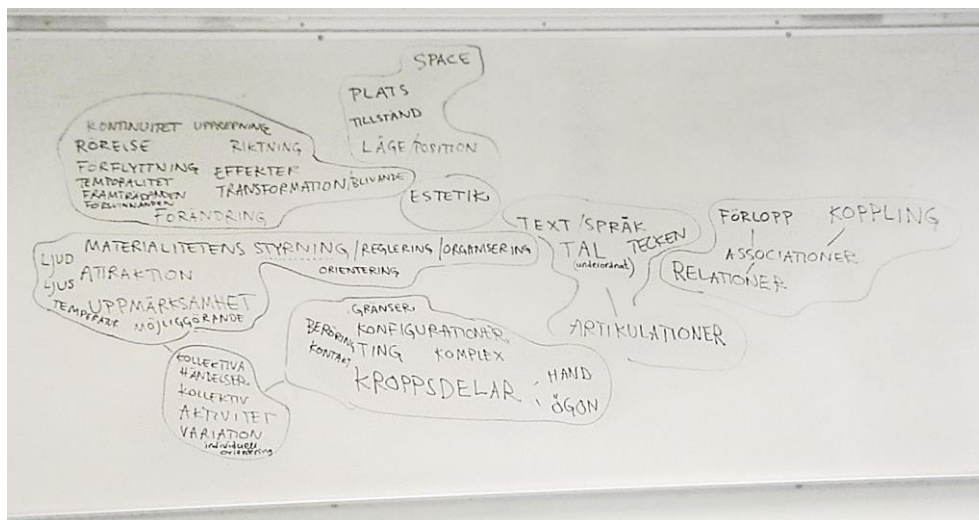 SPACE
PLATS
TILLSTÅND
LÄGE/POSITION
KONTINUITET UPPREPNING
RÖRELSE RIKTNING
FÖRFLYTTNING EFFEKTER
TEMPORALITET TRANSFORMATION/BLIVANDE
FRAMTRÄDANDEN
FÖRSVINNANDEN
FÖRÄNDRING
ESTETIK
TEXT/SPRÅK
TAL TECKEN
(underordnat)
ARTIKULATIONER
FÖRLOPP KOPPLING
ASSOCIATIONER
RELATIONER
MATERIALITETENS STYRNING/REGLERING/ORGANISERING
ORIENTERING
LJUD
LJUS
ATTRAKTION
UPPMÄRKSAMHET
TEMPERATUR MÖJLIGGÖRANDE
GRÄNSER
BERÖRING KONFIGURATIONER
KONTAKT TING KOMPLEX
KROPPSDELAR HAND
ÖGON
KOLLEKTIVA
HÄNDELSER
KOLLEKTIV
AKTIVITET
VARIATION
individuell
orientering